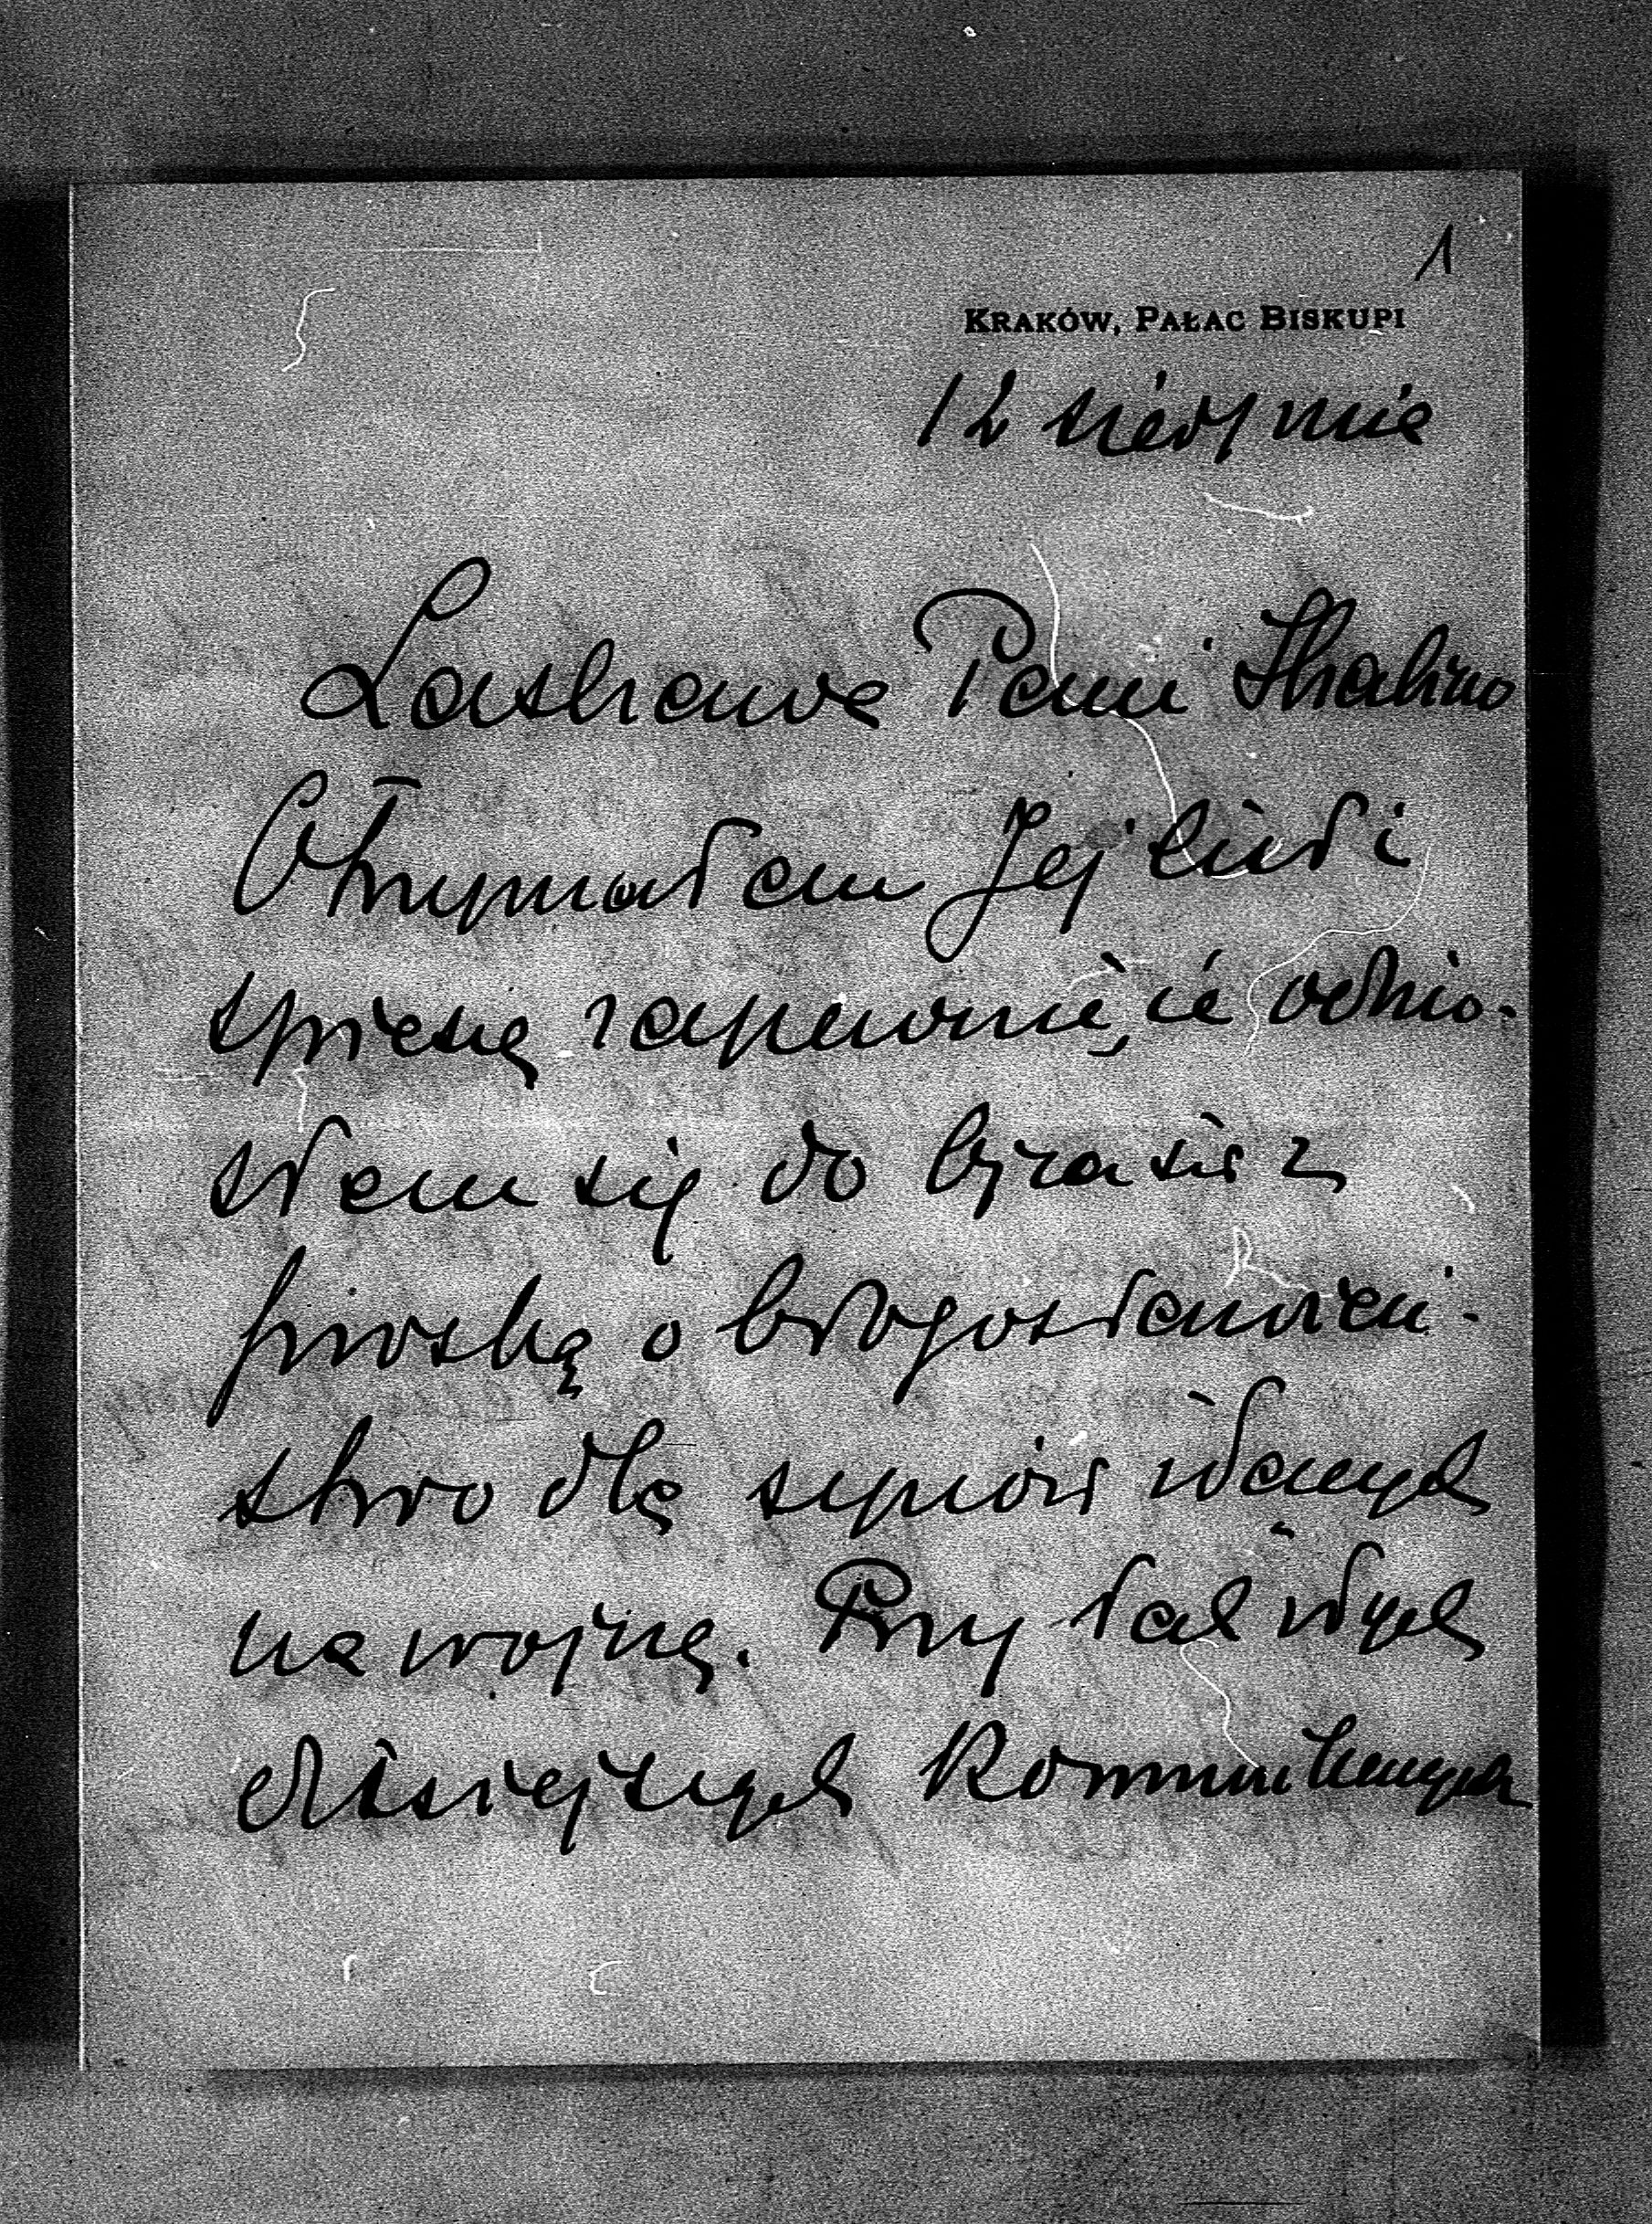 1
KRAKÓW, PAŁAC BISKUPI
12 sierpnia
Łaskawa Pani Hrabino
Otrzymałem Jej list i
spieszę zapewnić, iż odnio-
słem się do Ojca św. z
prośbą o błogosławień-
stwo dla synów idących
na wojnę. Przy tak złych
dzisiejszych komunikacyach